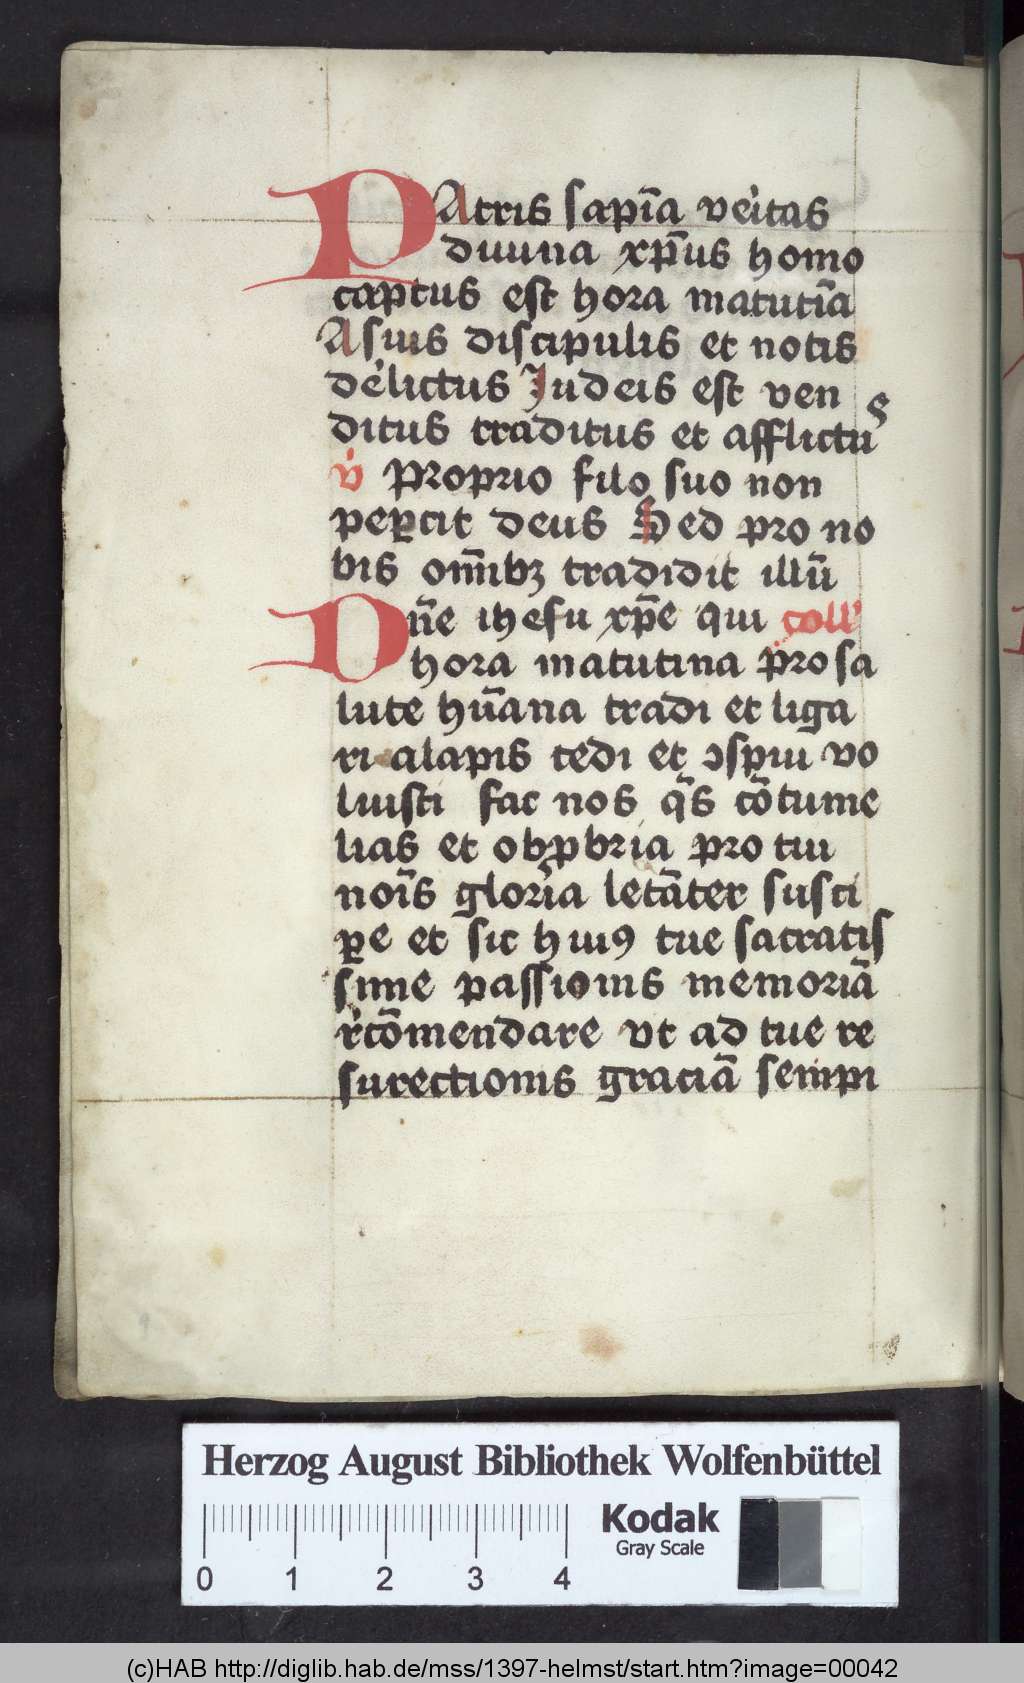 PAtris sapīa veitas
diuina xp̄us homo
captus est hora matutīa
A suis discipulis et notis
delictus Iudeis est ven
ditus traditus et afflictuS
v̇ Proprio filo suo non
peꝑcit deus Sed pro no
bis om̄ibꝫ tradidit illū
Dn̄e ihesu xp̄e qui coll'
hora matutina pro sa
lute hūana tradi et liga
ri alapis cedi et ↄspui vo
luisti fac nos q̄s cōtume
lias et obꝓbria pro tui
noīs gloria letāter susci
ꝑe et sic huiꝰ tue sacratis
sime passionis memoriā
rcōmendare vt ad tue re
surectionis graciā sempi
Herzog August Bibliothek Wolfenbüttel
0 1 2 3 4
Kodak
Gray Scale
(c)HAB http://diglib.hab.de/mss/1397-helmst/start.htm?image=00042